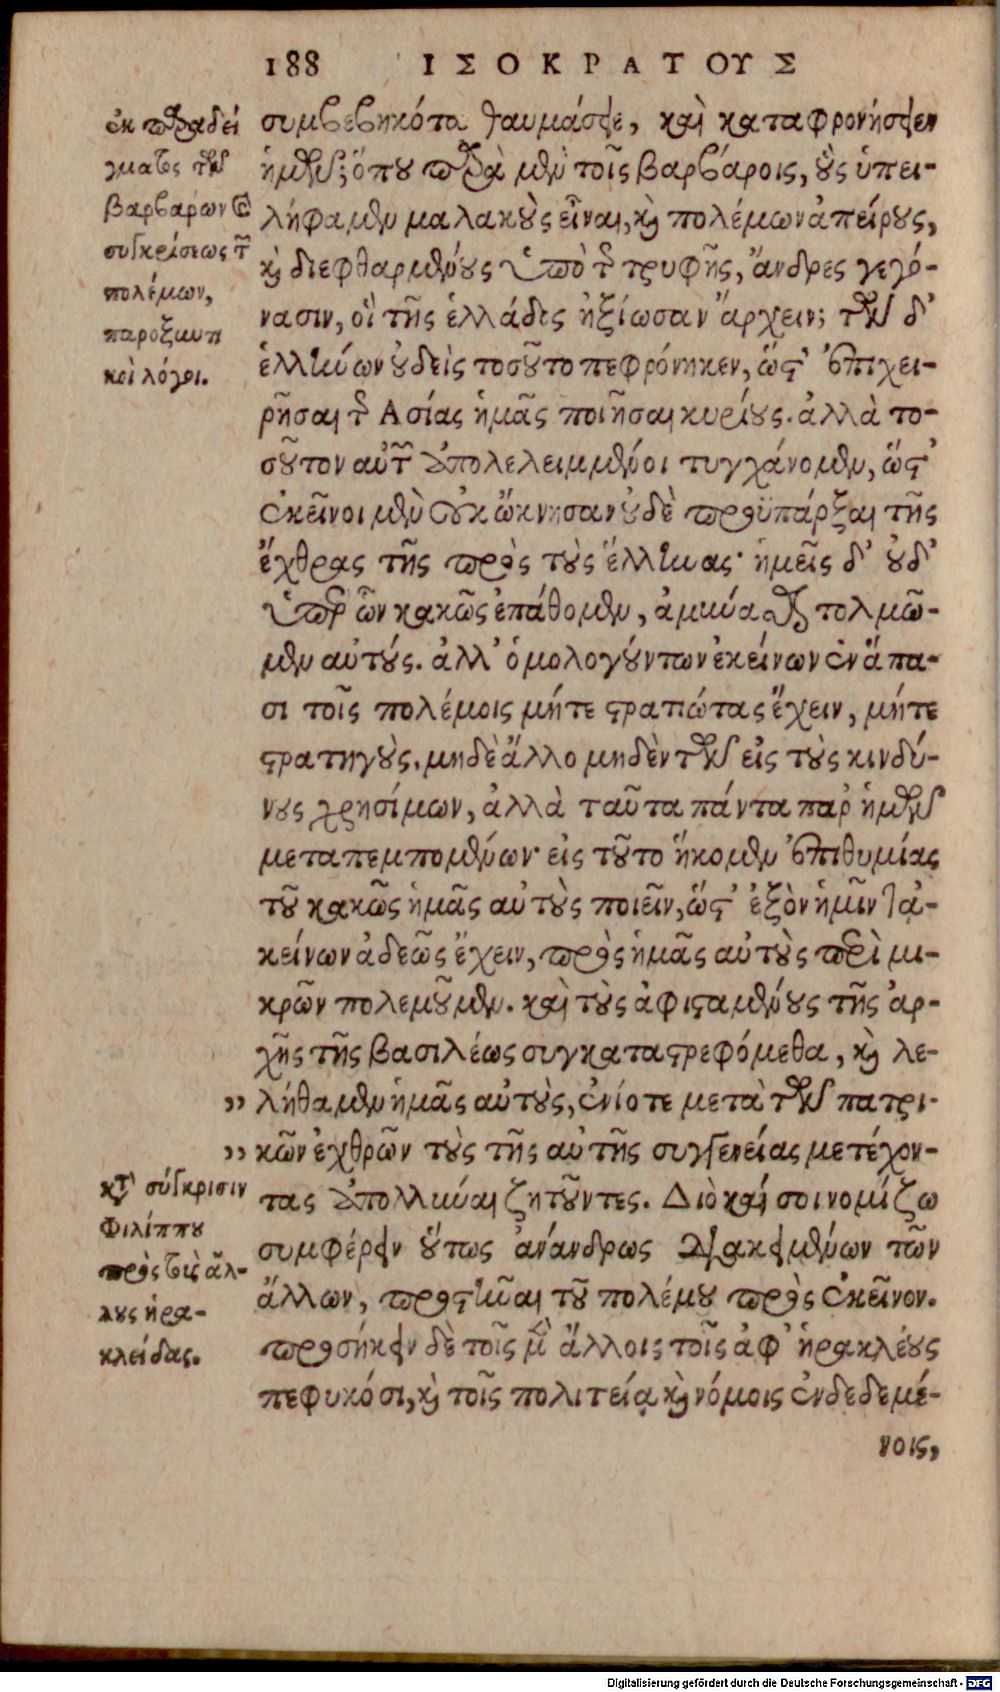 188 ΙΣΟΚΡΑΤΟΥΣ
ἐκ παραδεί
γματος τῶν
βαρβάρων καὶ
συγκρίσεως τῶν
πολέμων,
παροξυντι
κοὶ λόγοι.
συμβεβηκότα θαυμάσειε, καὶ καταφρονήσειεν
ἡμῶν; ὅπου παρὰ μὲν τοῖς βαρβάροις, οὓς ὑπει-
λήφαμεν μαλακοὺς εἶναι, καὶ πολέμων ἀπείρους,
καὶ διεφθαρμένους ὑπὸ τῆς τρυφῆς, ἄνδρες γεγό-
νασιν, οἳ τῆς ἑλλάδος ἠξίωσαν ἄρχειν; τῶν δ'
ἑλλήνων οὐδεὶς τοσοῦτο πεφρόνηκεν, ὥστ' ἐπιχει-
ρῆσαι τῆς Ασίας ἡμᾶς ποιῆσαι κυρίους. ἀλλὰ το-
σοῦτον αὐτῶν ἀπολελειμμένοι τυγχάνομεν, ὥστ'
ἐκεῖνοι μὲν οὐκ ὤκνησαν οὐδὲ προϋπάρξαι τῆς
ἔχθρας τῆς πρὸς τοὺς ἕλληνας· ἡμεῖς δ' οὐδ'
ὑπὲρ ὧν κακῶς ἐπάθομεν, ἀμύνασθαι τολμῶ-
μεν αὐτούς. ἀλλ' ὁμολογούντων ἐκείνων ἐν ἅπα-
σι τοῖς πολέμοις μήτε στρατιώτας ἔχειν, μήτε
στρατηγοὺς, μηδὲ ἄλλο μηδὲν τῶν εἰς τοὺς κινδύ-
νους χρησίμων, ἀλλὰ ταῦτα πάντα παρ' ἡμῶν
μεταπεμπομένων· εἰς τοῦτο ἥκομεν ἐπιθυμίας
τοῦ κακῶς ἡμᾶς αὐτοὺς ποιεῖν, ὥστ' ἐξὸν ἡμῖν τἀ-
κείνων ἀδεῶς ἔχειν, πρὸς ἡμᾶς αὐτοὺς περὶ μι-
κρῶν πολεμοῦμεν. καὶ τοὺς ἀφισταμένους τῆς ἀρ-
χῆς τῆς βασιλέως συγκαταστρεφόμεθα, καὶ λε-
” λήθαμεν ἡμᾶς αὐτοὺς, ἐνίοτε μετὰ τῶν πατρι-
” κῶν ἐχθρῶν τοὺς τῆς αὐτῆς συγγενείας μετέχον-
τας ἀπολλύναι ζητοῦντες. Διὸ καί σοι νομίζω
συμφέρειν οὕτως ἀνάνδρως διακειμένων τῶν
ἄλλων, προστῆναι τοῦ πολέμου πρὸς ἐκεῖνον.
προσήκειν δὲ τοῖς μὲν ἄλλοις τοῖς ἀφ' ἡρακλέους
πεφυκόσι, καὶ τοῖς πολιτείᾳ καὶ νόμοις ἐνδεδεμέ-
νοις,
κατὰ σύγκρισιν
Φιλίππου
πρὸς τοὺς ἄλ-
λους ἡρα-
κλείδας.
Digitalisierung gefördert durch die Deutsche Forschungsgemeinschaft - DFG